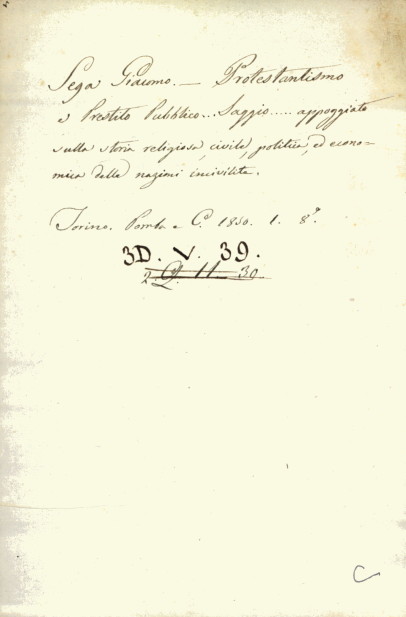 Sega Giacomo. — Protestantismo
e Prestito Pubblico... Saggio..... appoggiato
sulla storia religiosa, civile, politica, ed econo-
mica delle nazioni incivilite.
Torino. Pomba e C. 1850. 1. 8°.
3D. V. 39.
2. Q. 11 30
C